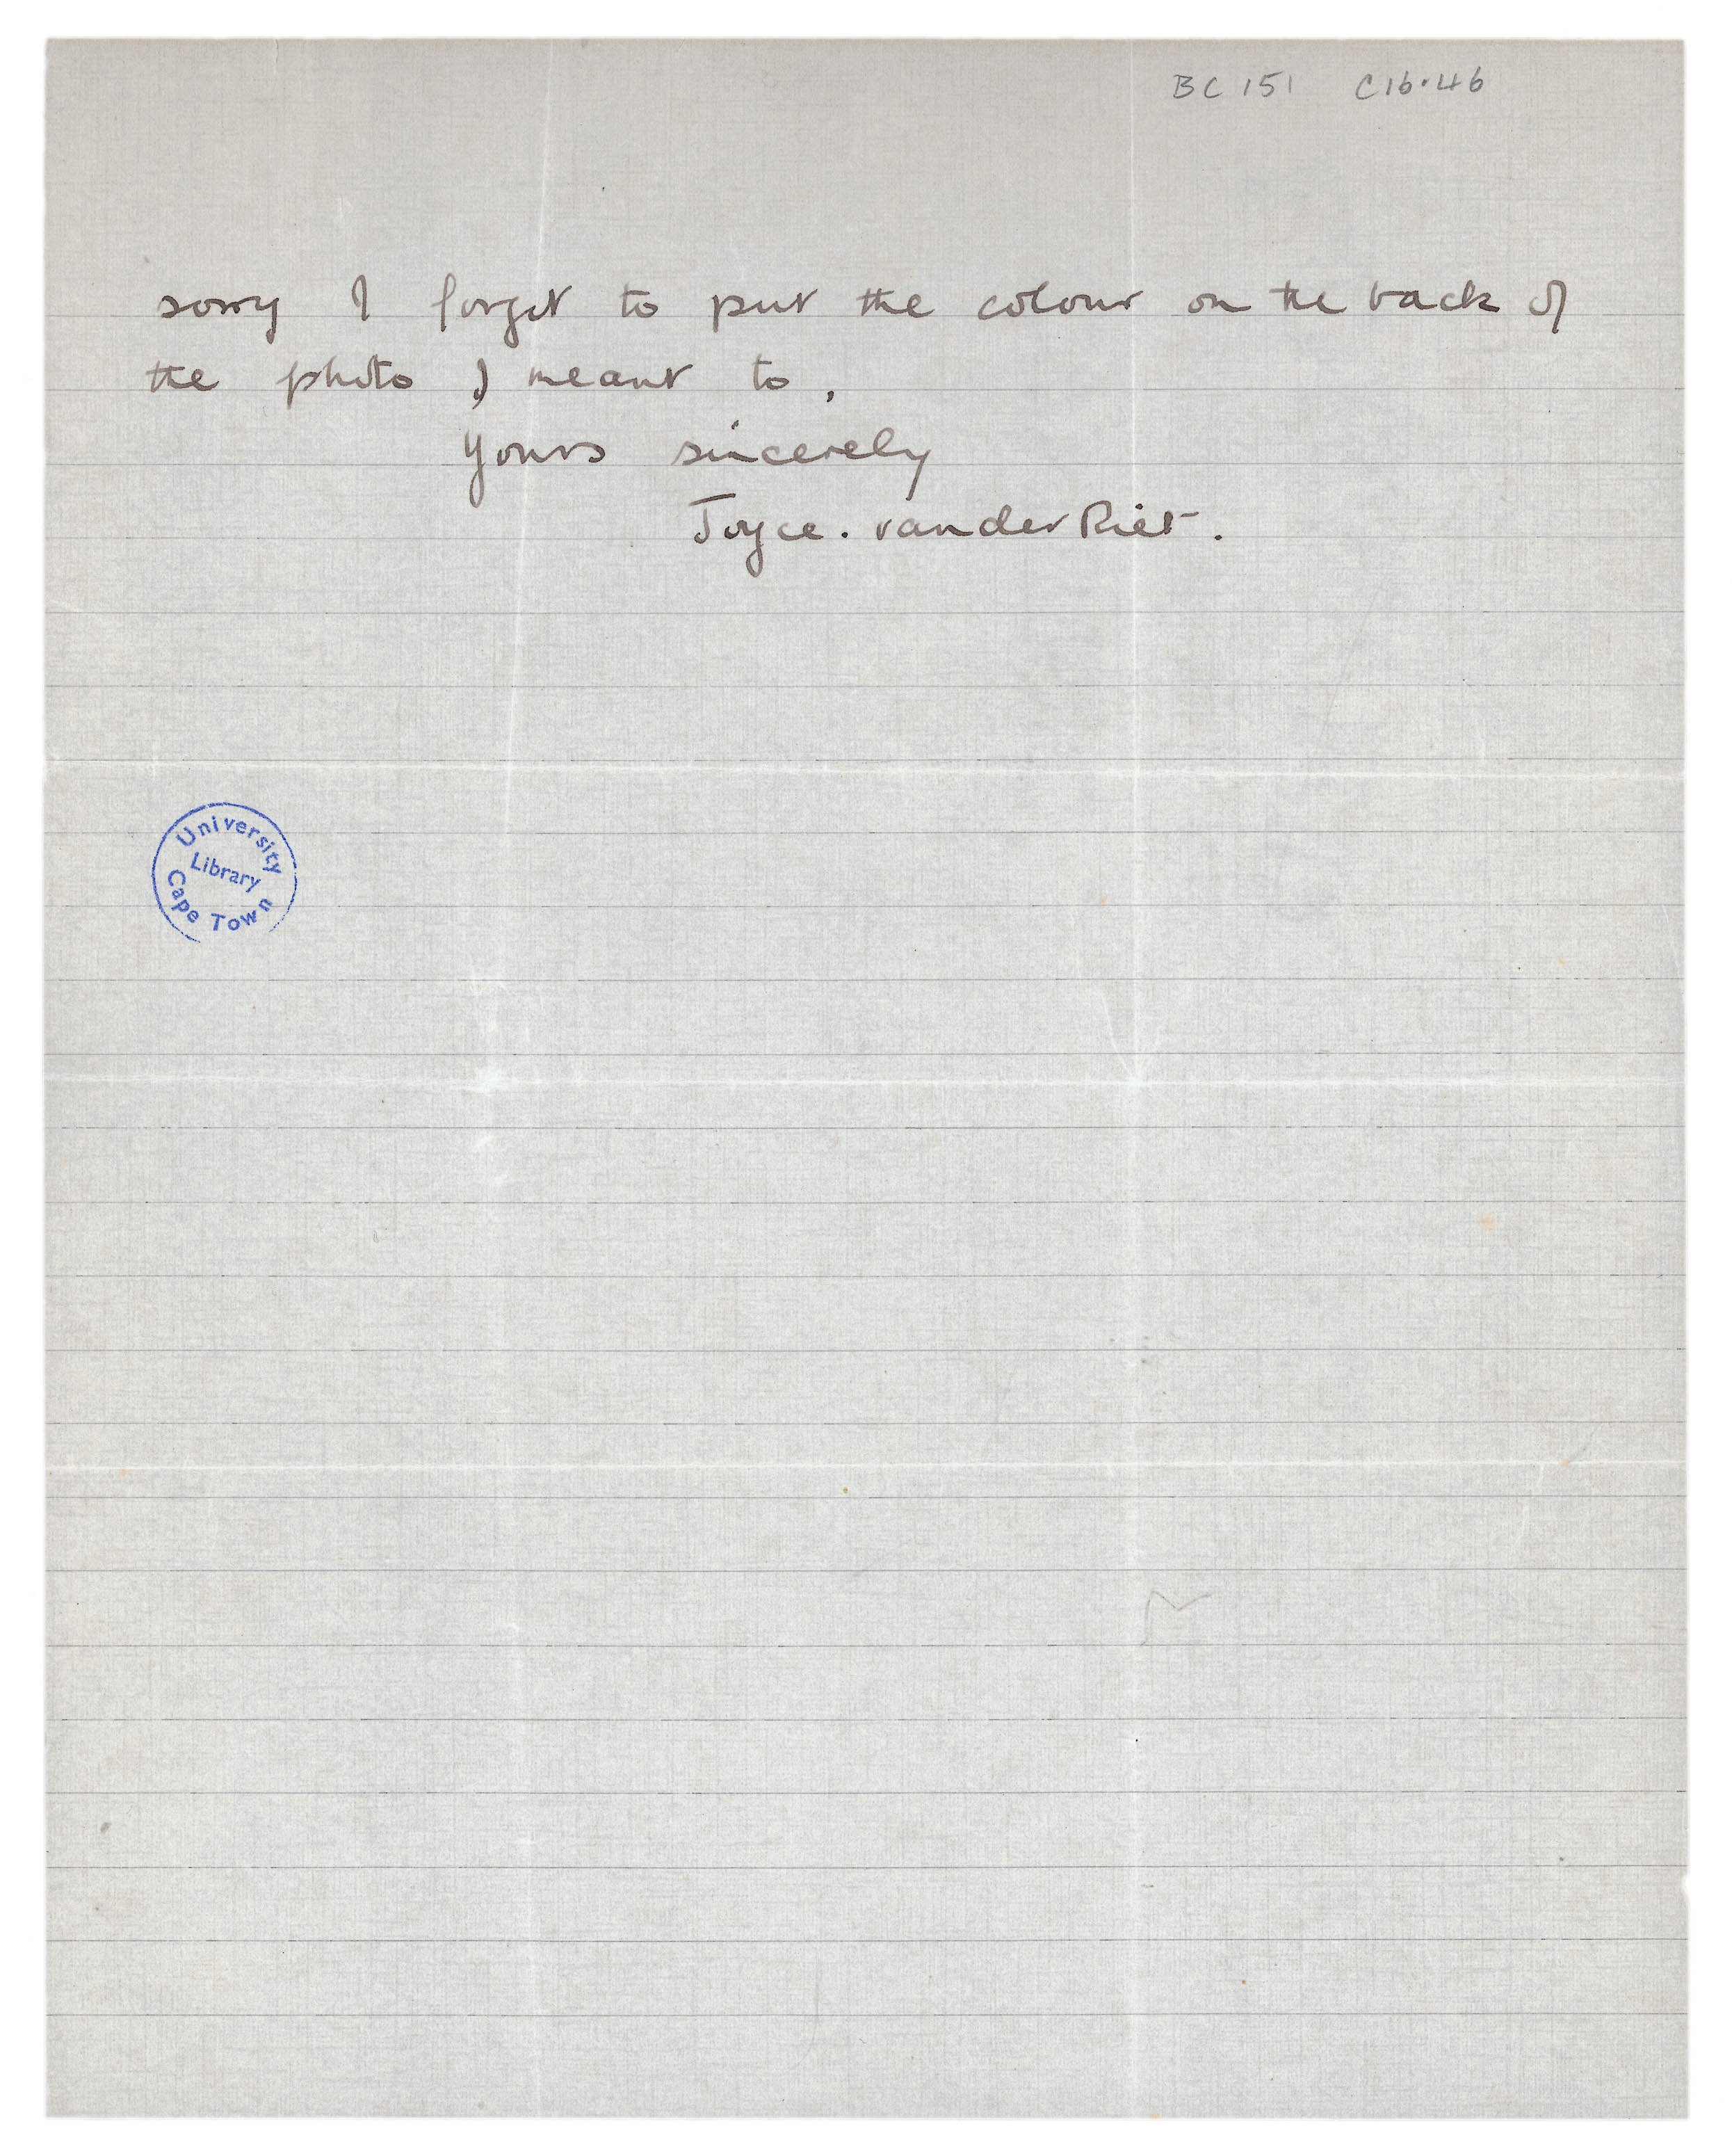 BC 151 C16.46
sorry I forgot to put the colour on the back of
the photo I meant to.
Yours sincerely
Joyce. van der Riet.
University
Library
Cape Town